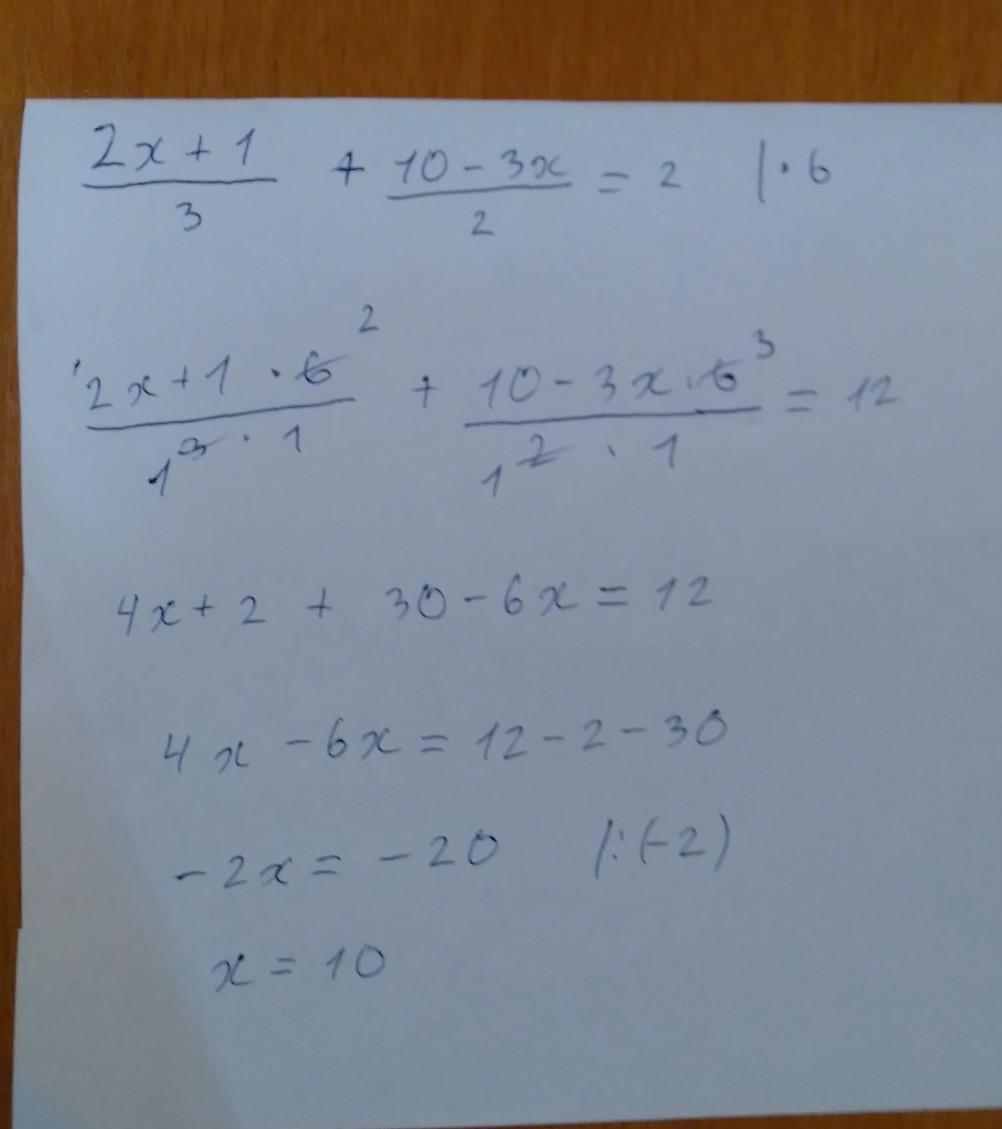 (2x + 1)/3 + (10 - 3x)/2 = 2 |· 6
(2x + 1 · 6 ²)/(1 3 · 1) + (10 - 3x · 6 ³)/(1 2 · 1) = 12
4x + 2 + 30 - 6x = 12
4x - 6x = 12 - 2 - 30
-2x = -20 /:(-2)
x = 10